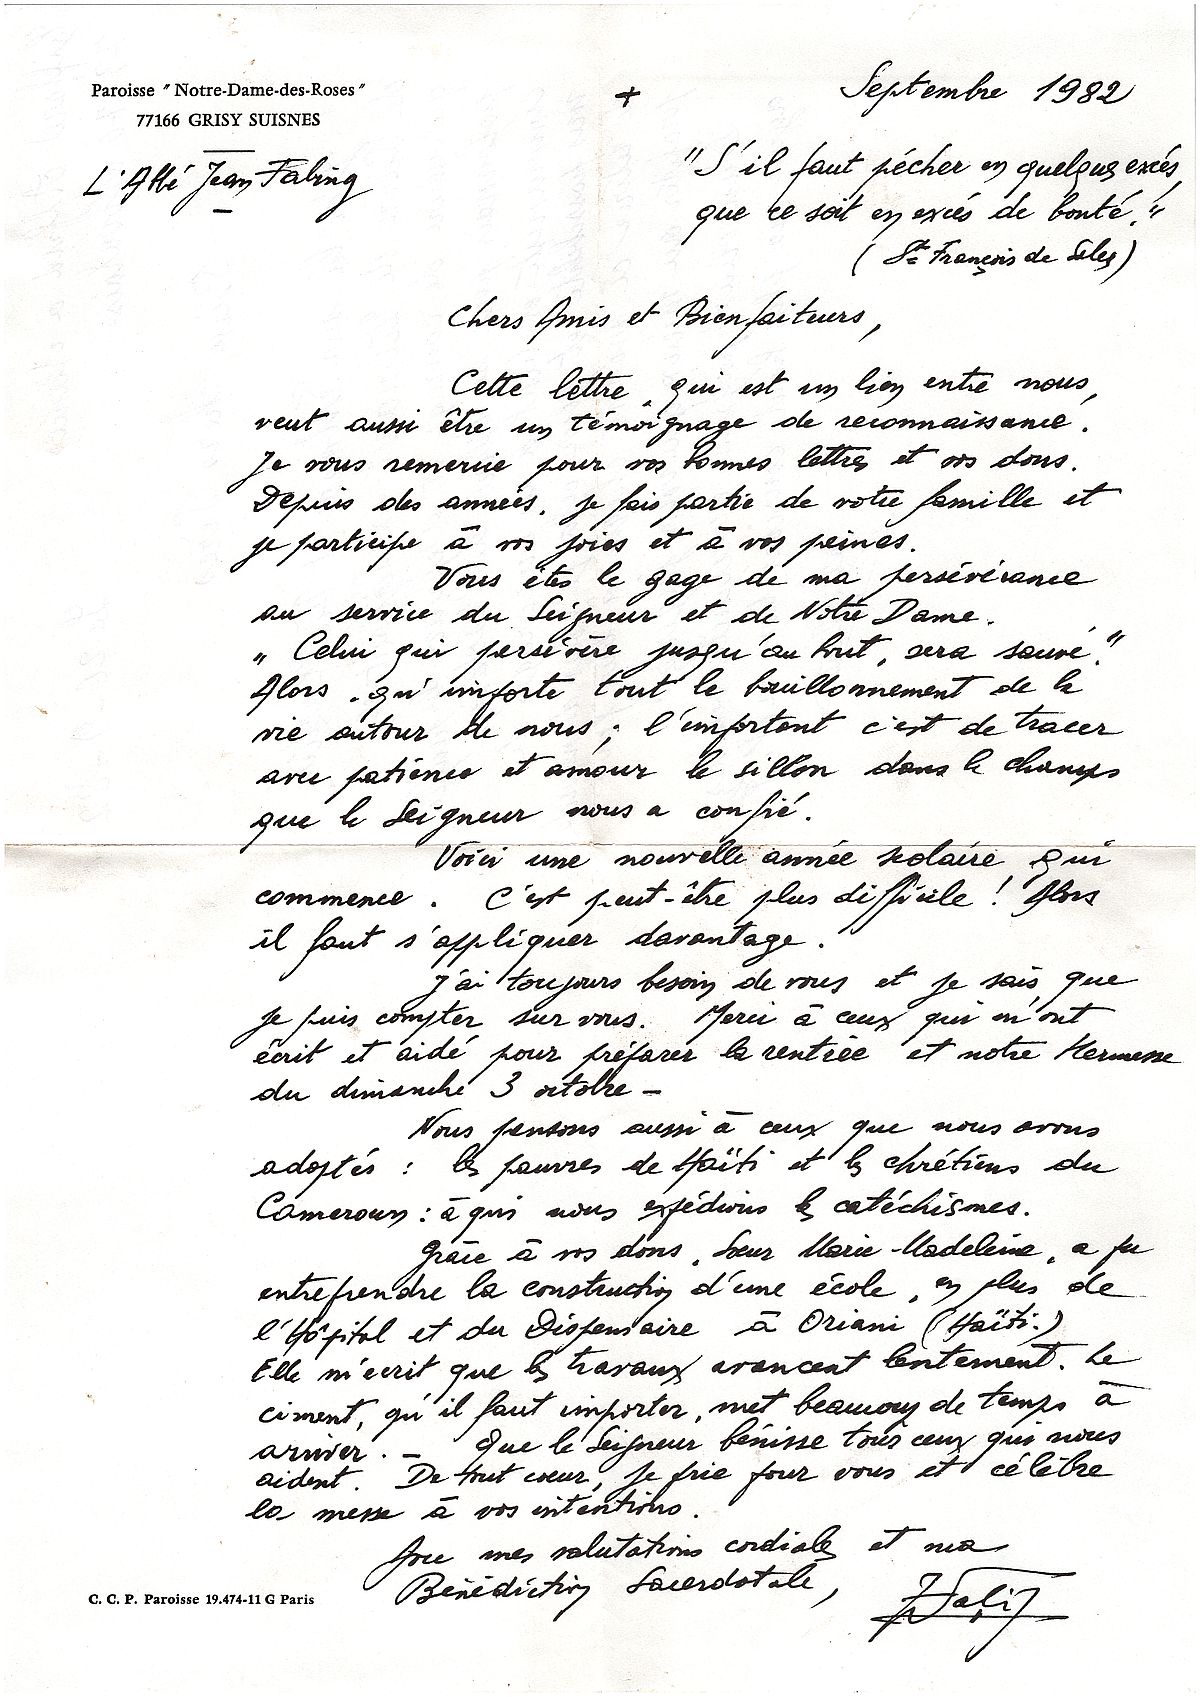 Paroisse "Notre-Dame-des-Roses"
77166 GRISY SUISNES
L'Abbé Jean Faling
+
Septembre 1982
"S'il faut pécher en quelques excés,
que ce soit en excés de bonté."
(St François de Sales)
Chers Amis et Bienfaiteurs,
Cette lettre, qui est un lien entre nous,
veut aussi être un témoignage de reconnaissance.
Je vous remercie pour vos bonnes lettres et vos dons.
Depuis des années, je fais partie de votre famille et
je participe à vos joies et à vos peines.
Vous êtes le gage de ma persévérance
au service du Seigneur et de Notre Dame.
"Celui qui persévère jusqu'au bout, sera sauvé."
Alors, qu'importe tout le bouillonnement de la
vie autour de nous ; l'important c'est de tracer
avec patience et amour le sillon dans le champs
que le Seigneur nous a confié.
Voici une nouvelle année scolaire qui
commence. C'est peut-être plus difficile ! Alors
il faut s'appliquer davantage.
J'ai toujours besoin de vous et je sais que
je puis compter sur vous. Merci à ceux qui m'ont
écrit et aidé pour préparer la rentrée et notre Kermesse
du dimanche 3 octobre -
Nous pensons aussi à ceux que nous avons
adoptés : les pauvres de Haïti et les chrétiens du
Cameroun : à qui nous expédions les catéchismes.
Grâce à vos dons, Sœur Marie-Madeleine, a pu
entreprendre la construction d'une école, en plus de
l'Hôpital et du Dispensaire à Oriani (Haïti.)
Elle m'écrit que les travaux avancent lentement. Le
ciment, qu'il faut importer, met beaucoup de temps à
arriver. - Que le Seigneur bénisse tous ceux qui nous
aident. De tout cœur, je prie pour vous et célèbre
la messe à vos intentions.
Avec mes salutations cordiales et ma
Bénédiction Sacerdotale,
C. C. P. Paroisse 19.474-11 G Paris